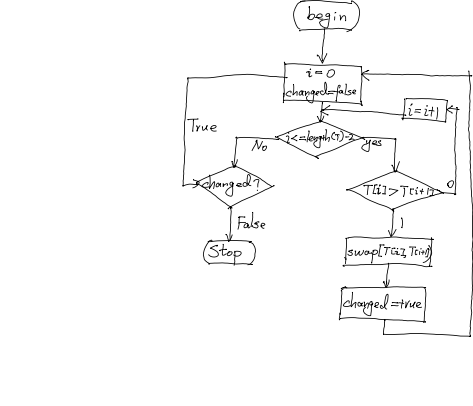 begin
i=0
changed=false
i=i+1
i<=length(T)-2
No
yes
True
changed?
T[i]>T[i+1]
0
False
1
Stop
swap[T[i],T[i+1]
changed=true